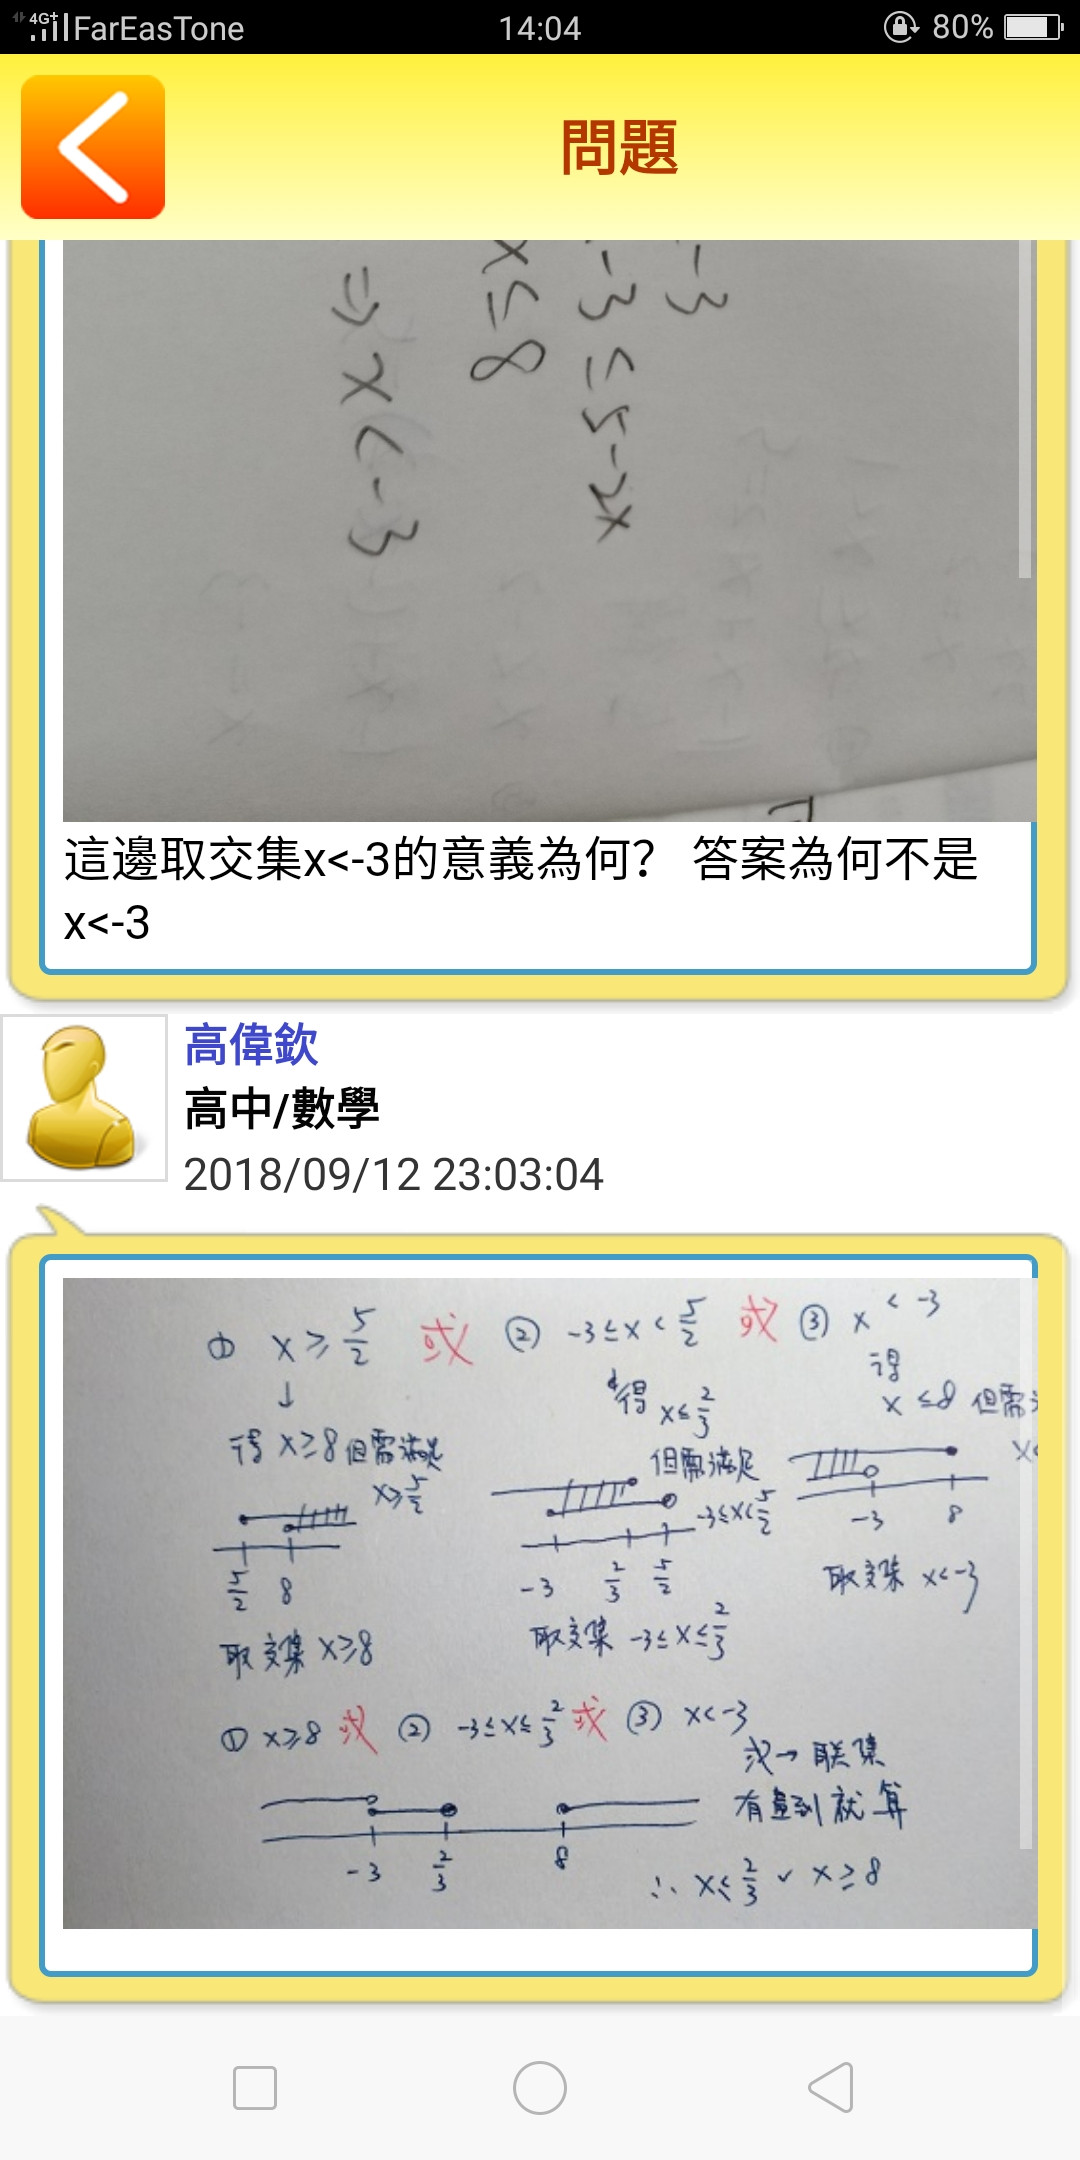 4G+ FarEasTone 14:04 80%
問題
-3
-3 ≤ 5-2x
x ≤ 8
⇒ x < -3
這邊取交集x<-3的意義為何? 答案為何不是
x<-3
高偉欽
高中/數學
2018/09/12 23:03:04
① x ≥ 5/2 或 ② -3 ≤ x < 5/2 或 ③ x < -3
↓
得 x ≥ 8 但需滿足
x ≥ 5/2
5/2 8
取交集 x ≥ 8
得 x ≤ 2/3
但需滿足
-3 ≤ x < 5/2
-3 2/3 5/2
取交集 -3 ≤ x ≤ 2/3
得
x ≤ 8 但需
x<
-3 8
取交集 x < -3
① x ≥ 8 或 ② -3 ≤ x ≤ 2/3 或 ③ x < -3
或 → 联集
有畫到就算
-3 2/3 8
∴ x ≤ 2/3 ∨ x ≥ 8